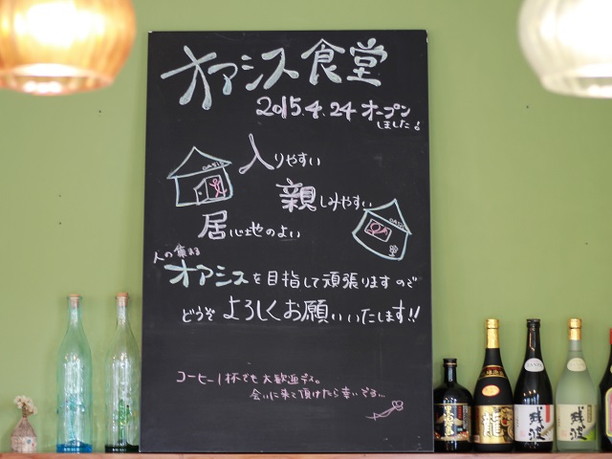 オアシス食堂
2015.4.24 オープン
しました!
OASIS
入りやすい
親しみやすい
居心地のよい
人の集まる
オアシスを目指して頑張りますので
どうぞ よろしくお願いいたします!!
コーヒー1杯でも大歓迎です。
会いに来て頂けたら幸いです...
龍
残波
残波